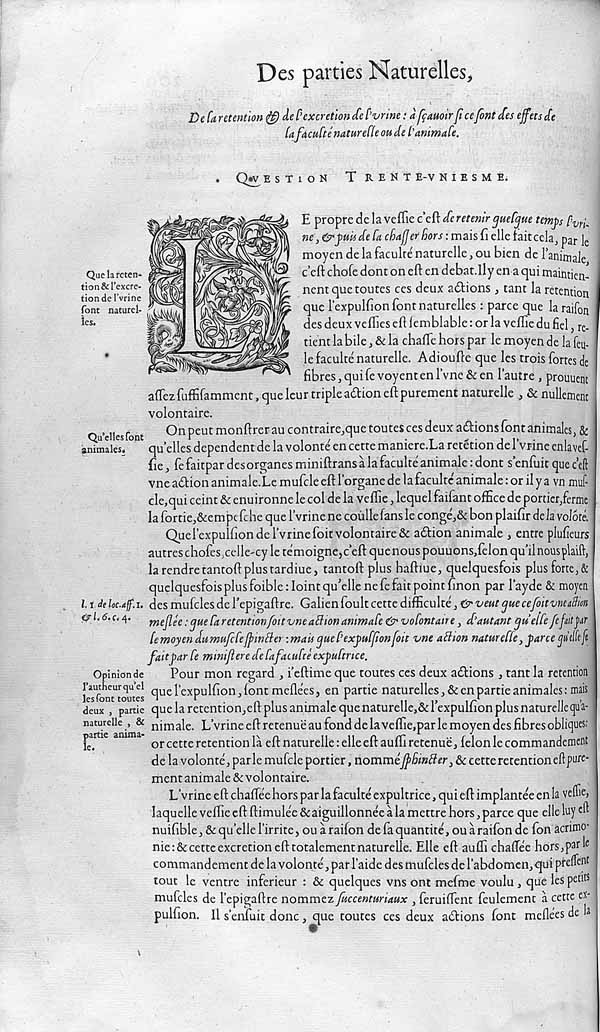 Des parties Naturelles,
De la retention & de l'excretion de l'vrine : à sçauoir si ce sont des effets de
la faculté naturelle ou de l'animale.
QVESTION TRENTE-VNIESME.
LE propre de la vessie c'est de retenir quelque temps l'vri-
ne, & puis de la chasser hors : mais si elle fait cela, par le
moyen de la faculté naturelle, ou bien de l'animale,
c'est chose dont on est en debat. Il y en a qui maintien-
nent que toutes ces deux actions, tant la retention
que l'expulsion sont naturelles : parce que la raison
des deux vessies est semblable : or la vessie du fiel, re-
tient la bile, & la chasse hors par le moyen de la seu-
le faculté naturelle. Adiouste que les trois sortes de
fibres, qui se voyent en l'vne & en l'autre, prouuent
assez suffisamment, que leur triple action est purement naturelle, & nullement
volontaire.
Que la reten-
tion & l'excre-
tion de l'vrine
sont naturel-
les.
On peut monstrer au contraire, que toutes ces deux actions sont animales, &
qu'elles dependent de la volonté en cette maniere. La retētion de l'vrine en la ves-
sie, se fait par des organes ministrans à la faculté animale : dont s'ensuit que c'est
vne action animale. Le muscle est l'organe de la faculté animale : or il y a vn mus-
cle, qui ceint & enuironne le col de la vessie, lequel faisant office de portier, ferme
la sortie, & empesche que l'vrine ne coüle sans le congé, & bon plaisir de la volōté.
Qu'elles sont
animales.
Que l'expulsion de l'vrine soit volontaire & action animale, entre plusieurs
autres choses, celle-cy le témoigne, c'est que nous pouuons, selon qu'il nous plaist,
la rendre tantost plus tardiue, tantost plus hastiue, quelquesfois plus forte, &
quelquesfois plus foible : Ioint qu'elle ne se fait point sinon par l'ayde & moyen
des muscles de l'epigastre. Galien soult cette difficulté, & veut que ce soit vne action
meslée : que la retention soit vne action animale & volontaire, d'autant qu'elle se fait par
le moyen du muscle sphincter : mais que l'expulsion soit vne action naturelle, parce qu'elle se
fait par le ministere de la faculté expultrice.
l. 1. de loc. aff. 1.
& l. 6. c. 4.
Pour mon regard, i'estime que toutes ces deux actions, tant la retention
que l'expulsion, sont meslées, en partie naturelles, & en partie animales : mais
que la retention, est plus animale que naturelle, & l'expulsion plus naturelle qu'a-
nimale. L'vrine est retenuë au fond de la vessie, par le moyen des fibres obliques :
or cette retention là est naturelle : elle est aussi retenuë, selon le commandement
de la volonté, par le muscle portier, nommé sphincter, & cette retention est pure-
ment animale & volontaire.
Opinion de
l'autheur qu'el
les sont toutes
deux, partie
naturelle, &
partie anima-
le.
L'vrine est chassée hors par la faculté expultrice, qui est implantée en la vessie,
laquelle vessie est stimulée & aiguillonnée à la mettre hors, parce que elle luy est
nuisible, & qu'elle l'irrite, ou à raison de sa quantité, ou à raison de son acrimo-
nie : & cette excretion est totalement naturelle. Elle est aussi chassée hors, par le
commandement de la volonté, par l'aide des muscles de l'abdomen, qui pressent
tout le ventre inferieur : & quelques vns ont mesme voulu, que les petits
muscles de l'epigastre nommez succenturiaux, seruissent seulement à cette ex-
pulsion. Il s'ensuit donc, que toutes ces deux actions sont meslées de la